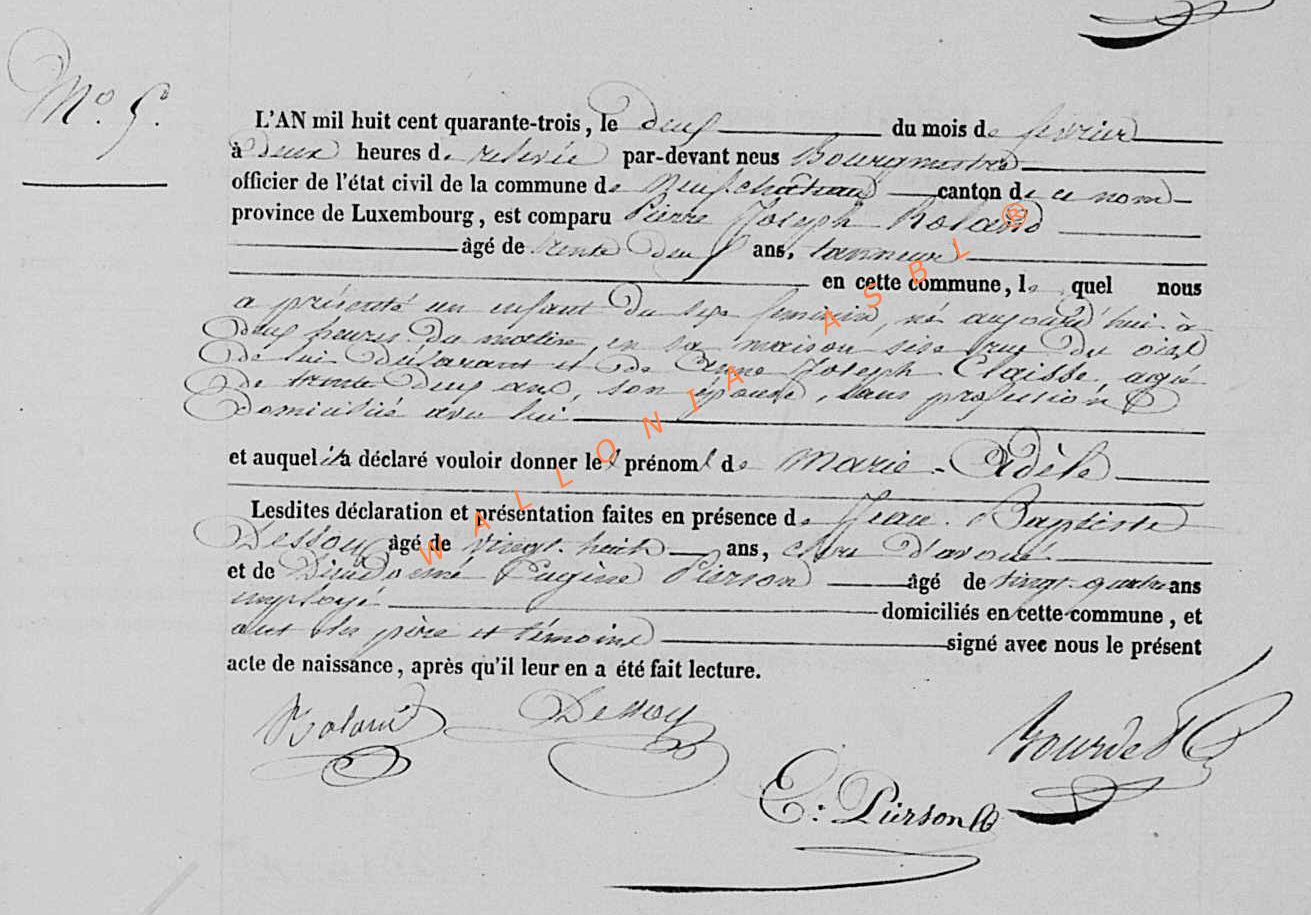 N.º 5.
L'AN mil huit cent quarante-trois, le deux du mois de février
à deux heures de relevée par-devant nous Bourgmestre
officier de l'état civil de la commune de Neufchâteau canton de ce nom
province de Luxembourg, est comparu Pierre Joseph Roland
âgé de trente deux ans, tanneur
en cette commune, lequel nous
a présenté un enfant du sexe feminin, né aujourd'hui à
deux heures du matin, en sa maison sise rue du
de lui déclarant et de Anne Joseph Claisse, agée
de trente deux ans, son épouse, sans profession
domiciliée avec lui
et auquel il a déclaré vouloir donner les prénoms de Marie-Adèle
Lesdites déclaration et présentation faites en présence de Jean-Baptiste
Dessoy âgé de vingt-huit ans, clerc d'avoué
et de Dieudonné Eugène Pierson âgé de vingt-quatre ans
employé domiciliés en cette commune, et
ont les père et témoins signé avec nous le présent
acte de naissance, après qu'il leur en a été fait lecture.
Roland Dessoy
E: Pierson
WALLONIA ASBL ®